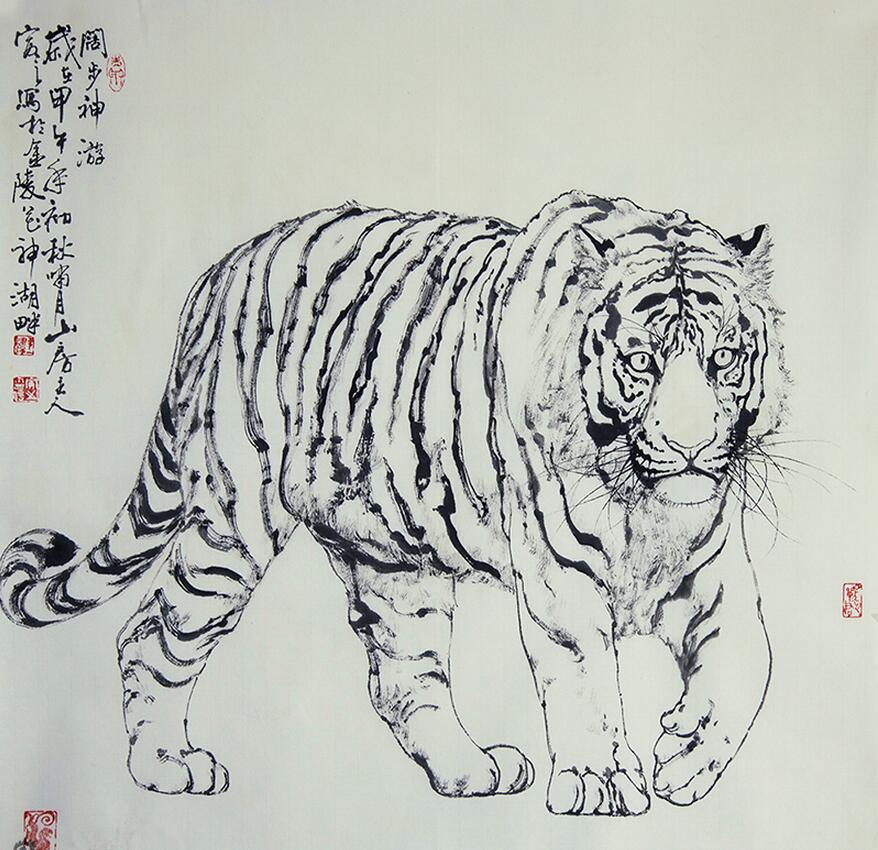 阔步神游
歲在甲午年初秋嘯月山房主人
寫於金陵花神湖畔